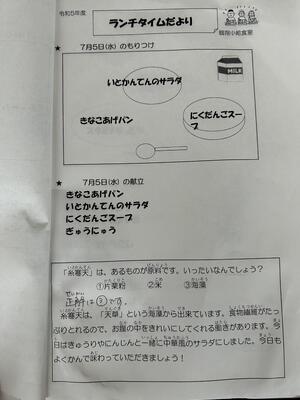 令和5年度
ランチタイムだより
鶴指小給食室
★ 7月5日(水)のもりつけ
いとかんてんのサラダ
MILK
きなこあげパン
にくだんごスー
プ
★ 7月5日(水)の献立
きなこあげパン
いとかんてんのサラダ
にくだんごスープ
ぎゅうにゅう
「糸寒天」は、あるものが原料です。いったいなんでしょう?
①片栗粉 ②米 ③海藻
正解は③です。
糸寒天は、「天草」という海藻から出来ています。食物繊維がた
っぷりとれるので、お腹の中をきれいにしてくれる働きがあります。今
日はきゅうりやにんじんと一緒に中華風のサラダにしました。今日も
よくかんで味わっていただきましょう!